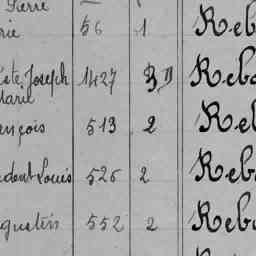 Pierre
rie 56 1 Reb
iste Joseph 1427 3 D Reba
Marie
ençois 513 2 Reb
udent Louis 526 2 Reb
gustin 552 2 Reba